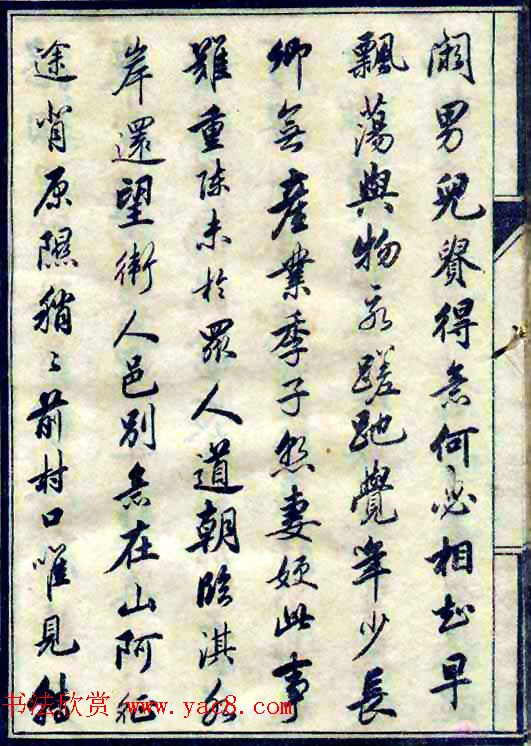 闊男兒貴得意何必相知早
飄蕩與物永蹉跎覺年少長
卿無產業季子慙妻嫂此事
難重陳未於眾人道朝臨淇水
岸還望衛人邑別意在山阿征
途背原隰稍々前村口唯見轉
书法欣赏 www.yac8.com